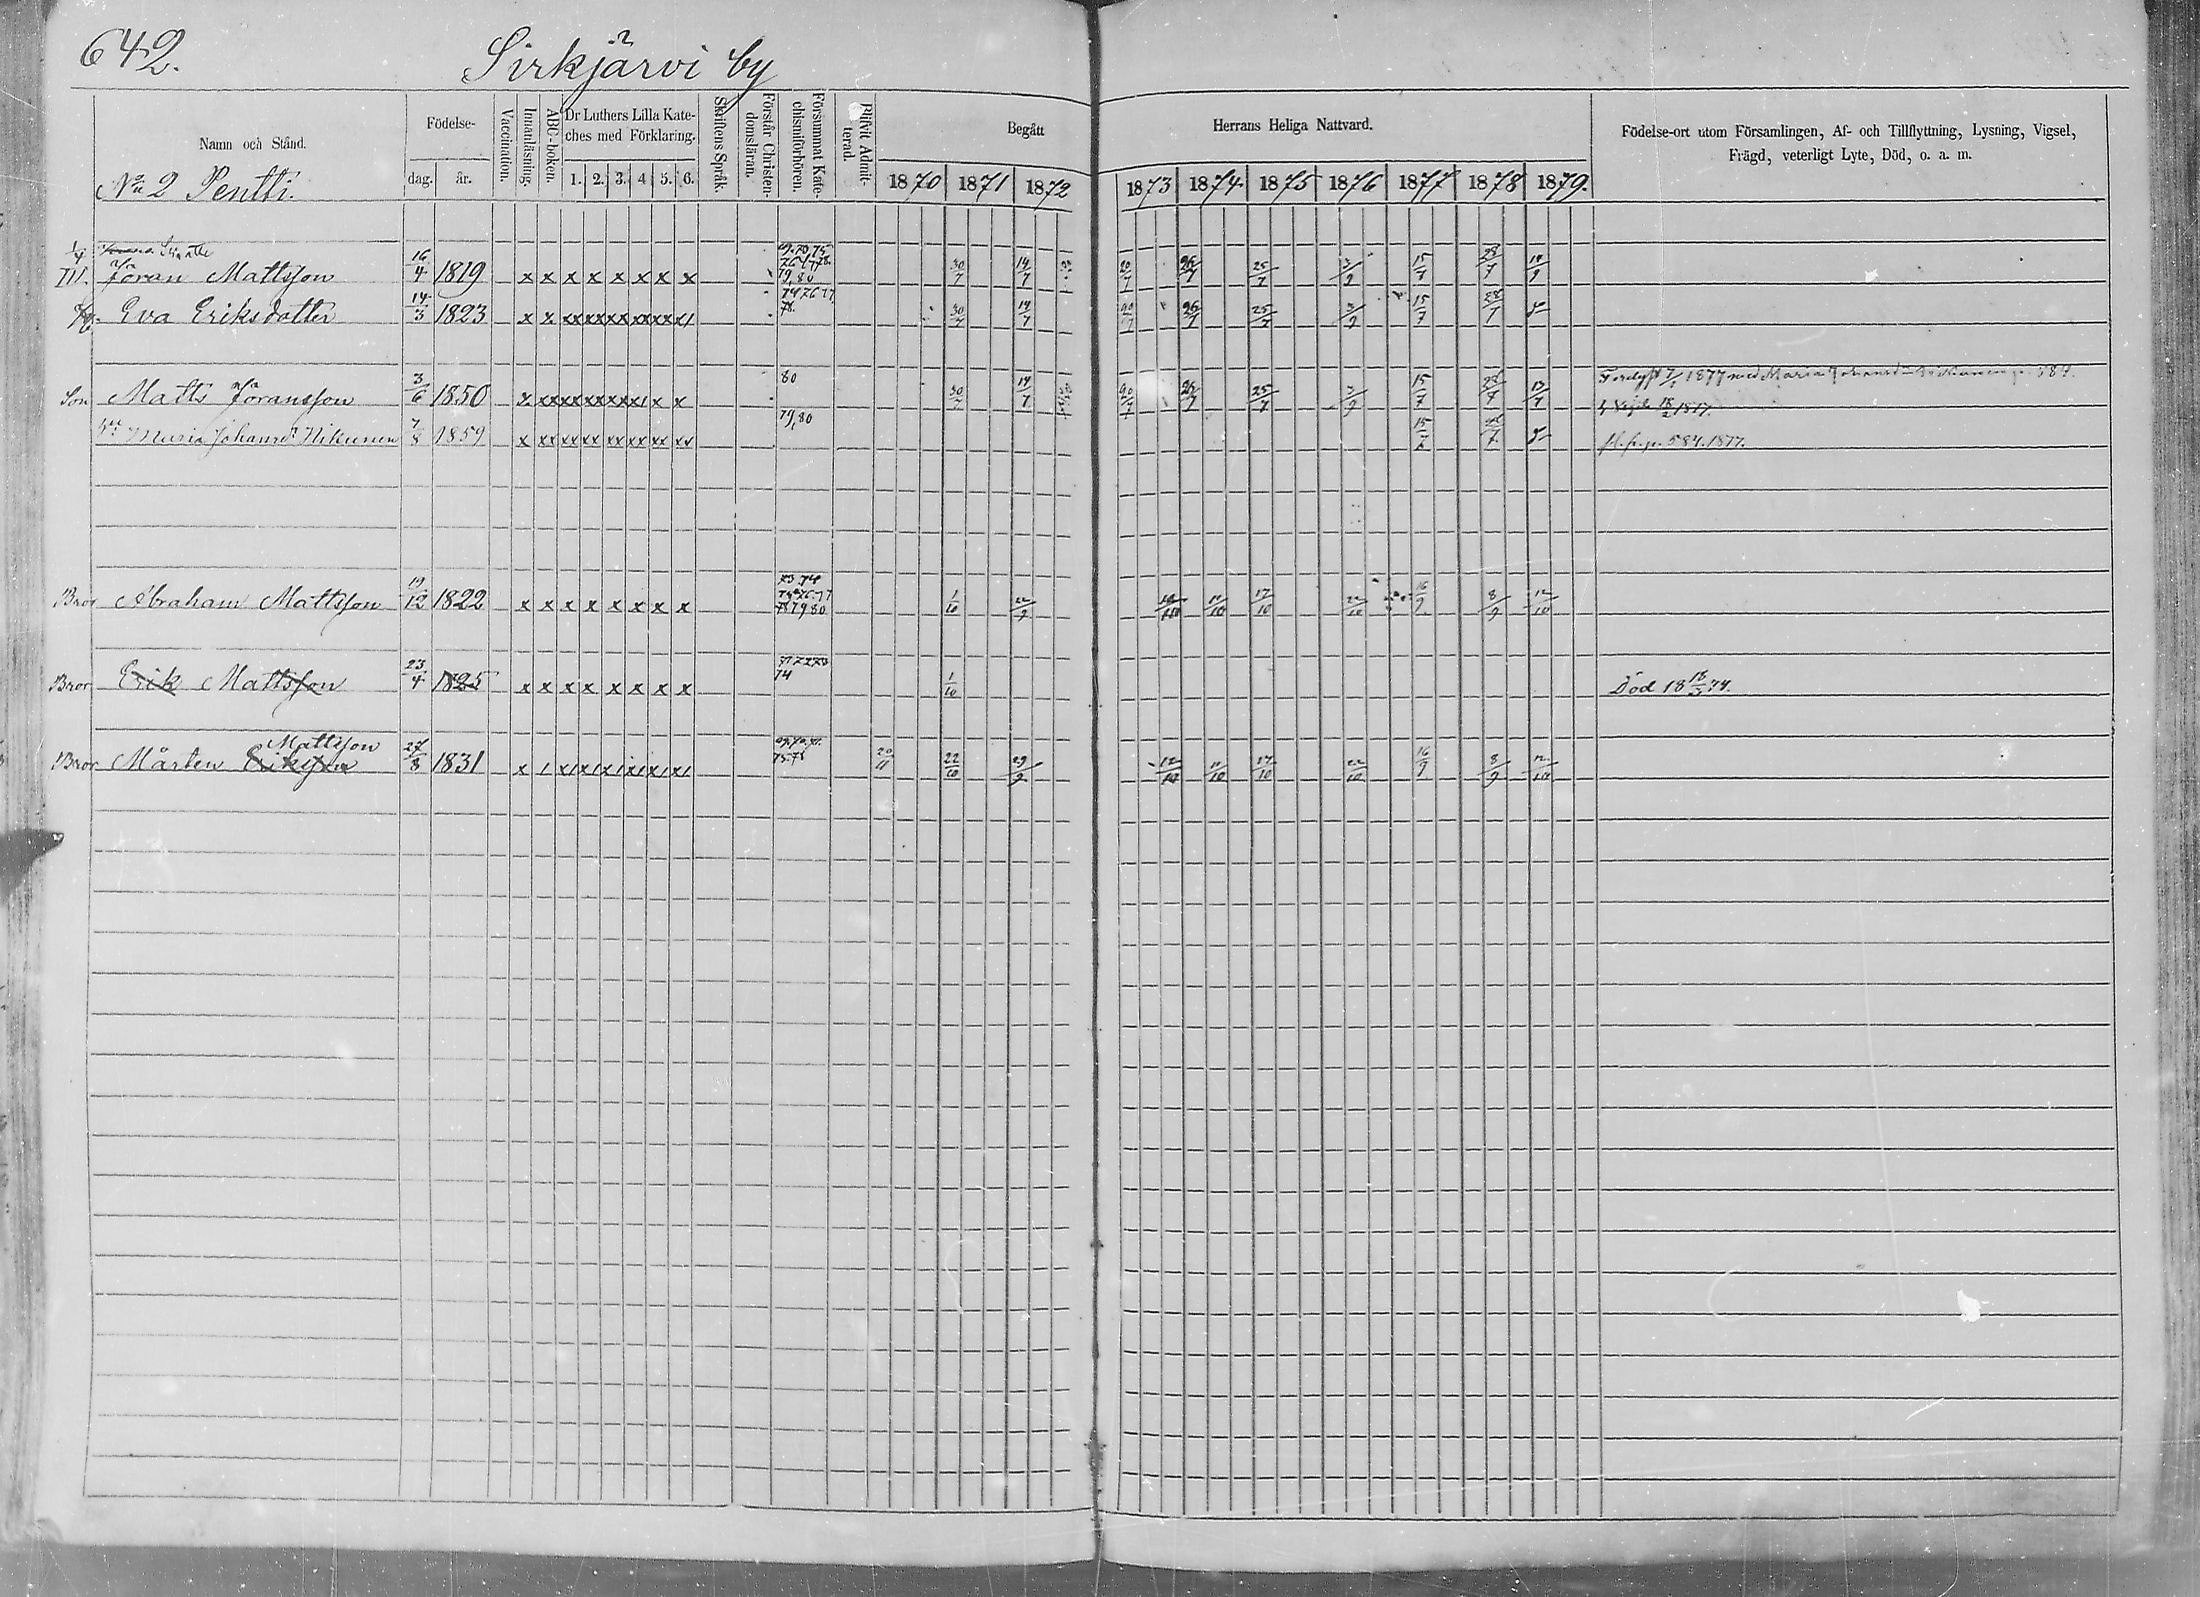 642.
Sirkjärvi by
Namn och Stånd.
Födelse-
dag. år.
Vaccination.
Innanläsning.
ABC-boken.
Dr Luthers Lilla Kate-
ches med Förklaring.
1. 2. 3. 4. 5. 6.
Skriftens Språk.
Förstår Christen-
domsläran.
Försummat Kate-
chismiförhören.
Blifvit Admit-
terad.
Begått
Herrans Heliga Nattvard.
1870 1871 1872 1873 1874 1875 1876 1877 1878 1879.
Födelse-ort utom Församlingen, Af- och Tillflyttning, Lysning, Vigsel,
Frägd, veterligt Lyte, Död, o. a. m.
No 2 Pentti.
Jöran Mattsson 16/4 1819 x x x x x x x x 30/7 14/7 20/7 26/7 25/7 3/9 15/7 28/7
Eva Eriksdotter 14/3 1823 x x xx xx xx xx xx x1 30/7 14/7 20/7 26/7 25/7 3/9 15/7 28/7
Son Matts Jöransson 3/6 1850 80 30/7 14/7 20/7 26/7 25/7 3/9 15/7 28/7 13/7 1877 med Maria
Maria Johansdr Hikunen 7/8 1859 x xx xx xx xx xx xx xx 79,80 15/7 28/7 584.1877.
Bror Abraham Mattsson 19/12 1822 x x x x x x x x 73 74 1/10 22/9 12/10 11/10 17/10 22/10 16/9 8/9 12/10
Bror Erik Mattsson 23/4 1825 x x x x x x x x 74 1/10 Död 18 18/5 74.
Mattsson
Bror Mårten Eriksson 27/8 1831 x 1 x1 x1 x1 x1 x1 x1 20/11 22/10 29/9 12/10 11/10 17/10 22/10 16/9 8/9 12/10